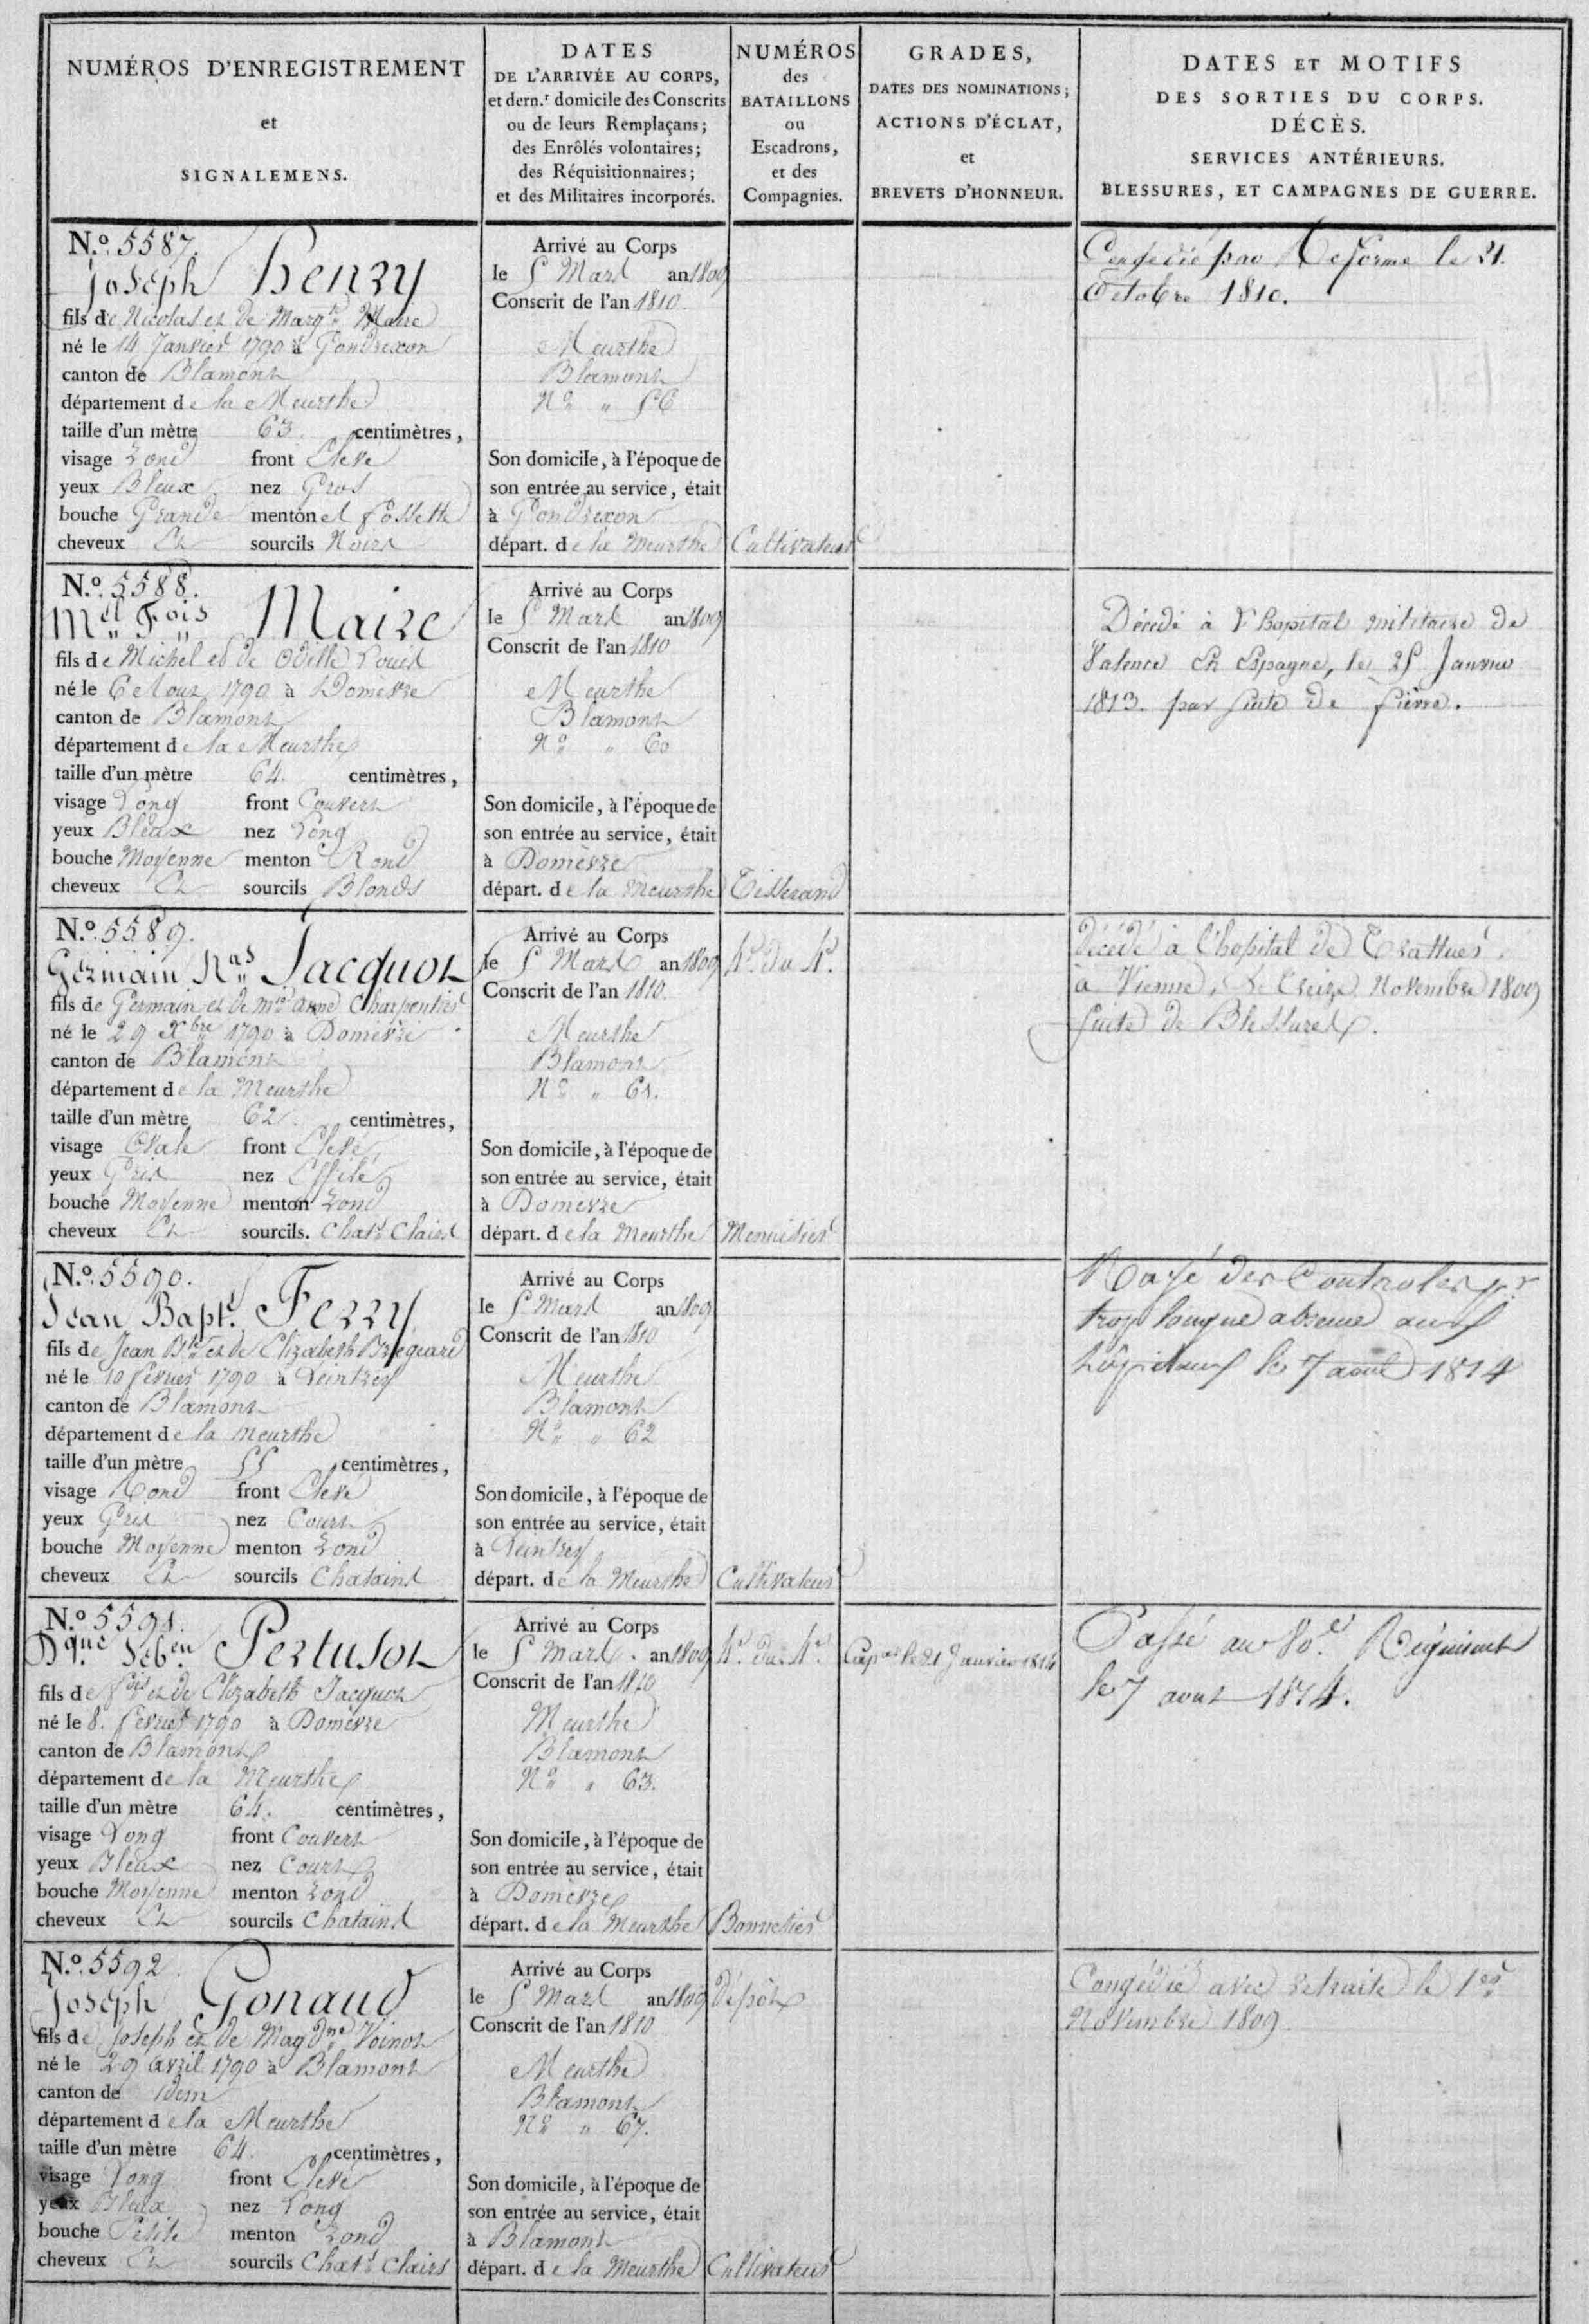 NUMÉROS D'ENREGISTREMENT
et
SIGNALEMENS.
DATES
DE L'ARRIVÉE AU CORPS,
et dern.r domicile des Conscrits
ou de leurs Remplaçans;
des Enrôlés volontaires;
des Réquisitionnaires;
et des Militaires incorporés.
NUMÉROS
des
BATAILLONS
ou
Escadrons,
et des
Compagnies.
GRADES,
DATES DES NOMINATIONS;
ACTIONS D'ÉCLAT,
et
BREVETS D'HONNEUR.
DATES ET MOTIFS
DES SORTIES DU CORPS.
DÉCÈS.
SERVICES ANTÉRIEURS.
BLESSURES, ET CAMPAGNES DE GUERRE.
N.º 5587.
Joseph Henry
fils de Nicolas et de Marg.te Maire
né le 14 Janvier 1790 à Gondrexon
canton de Blamont
département de la Meurthe
taille d'un mètre 63 centimètres,
visage rond front Elevé
yeux Bleux nez Gros
bouche Grande menton et fossette
cheveux Ch sourcils Noirs
Arrivé au Corps
le 5 Mars an 1809
Conscrit de l'an 1810
Meurthe
Blamont
Nº " 56
Son domicile, à l'époque de
son entrée au service, était
à Gondrexon
départ. de la Meurthe
Cultivateur
Congédié par Reforme le 21.
Octobre 1810.
N.º 5588.
Mel Fois Maire
fils de Michel et de Odille Louis
né le 6 Aout 1790 à Domèvre
canton de Blamont
département de la Meurthe
taille d'un mètre 64. centimètres,
visage Long front Couvert
yeux Bleux nez Long
bouche Moyenne menton Rond
cheveux Ch sourcils Blonds
Arrivé au Corps
le 5 Mars an 1809
Conscrit de l'an 1810
Meurthe
Blamont
Nº " 60
Son domicile, à l'époque de
son entrée au service, était
à Domèvre
départ. de la Meurthe
Tisserand
Décédé à l'hopital militaire de
Valence En Espagne, le 25 Janvier
1813. par suite de fièvre.
N.º 5589.
Germain Nas Jacquot
fils de Germain et de Mie anne Charpentier
né le 29 Xbre 1790 à Domèvre
canton de Blamont
département de la Meurthe
taille d'un mètre 62. centimètres,
visage Ovale front Elevé
yeux Gris nez Effilé
bouche Moyenne menton rond
cheveux Ch sourcils. Chats Clairs
Arrivé au Corps
le 5 Mars an 1809
Conscrit de l'an 1810.
Meurthe
Blamont
Nº " 61.
Son domicile, à l'époque de
son entrée au service, était
à Domèvre
départ. de la Meurthe
4e. du 4e.
Menuisier
décédé à l'hopital de Trattner
à Vienne, Le treize Novembre 1809
suite de Blessures.
N.º 5590.
Jean Bapt. Ferry
fils de Jean Bte et de Elizabeth Brégeard
né le 10 février 1790 à Leintrey
canton de Blamont
département de la Meurthe
taille d'un mètre 55 centimètres,
visage Rond front Elevé
yeux Gris nez Court
bouche Moyenne menton rond
cheveux Ch sourcils Chatains
Arrivé au Corps
le 5 Mars an 1809
Conscrit de l'an 1810
Meurthe
Blamont
Nº " 62
Son domicile, à l'époque de
son entrée au service, était
à Leintrey
départ. de la Meurthe
Cultivateur
Rayé des Controles pr
trop longue absence aux
hôpitaux le 7 aout 1814
N.º 5591.
Dque Sebien Pertusot
fils de fois et de Elizabeth Jacquot
né le 8. février 1790 à Domèvre
canton de Blamont
département de la Meurthe
taille d'un mètre 64. centimètres,
visage Long front Couvert
yeux Bleux nez Court
bouche Moyenne menton rond
cheveux Ch sourcils Chatains
Arrivé au Corps
le 5 Mars. an 1809
Conscrit de l'an 1810
Meurthe
Blamont
Nº " 63.
Son domicile, à l'époque de
son entrée au service, était
à Domèvre
départ. de la Meurthe
4e. du 4e.
Bonnetier
Cap.al le 21 Janvier 1814
Passé au 80.e Régiment
le 7 aout 1814.
N.º 5592
Joseph Gonaud
fils de Joseph et de Magdne Voinot
né le 29 avril 1790 à Blamont
canton de idem
département de la Meurthe
taille d'un mètre 64. centimètres,
visage Long front Elevé
yeux Bleux nez Long
bouche Petite menton rond
cheveux Ch sourcils Chats Clairs
Arrivé au Corps
le 5 Mars an 1809
Conscrit de l'an 1810
Meurthe
Blamont
Nº " 67.
Son domicile, à l'époque de
son entrée au service, était
à Blamont
départ. de la Meurthe
dépôt
Cultivateur
Congédié avec retraite le 1er
Novembre 1809